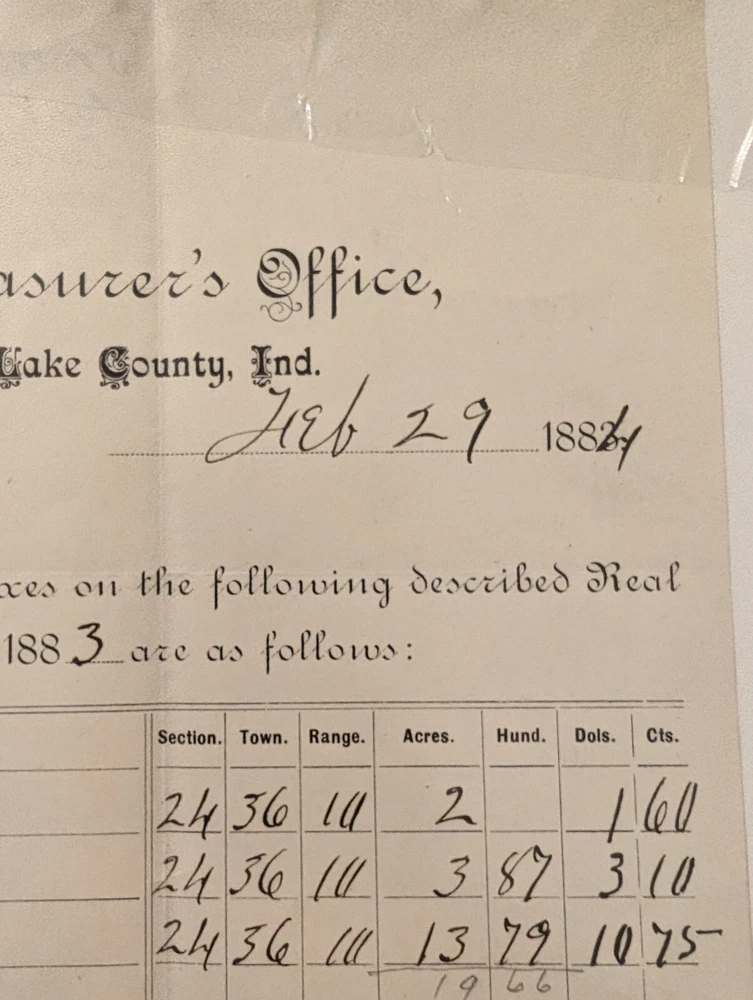 asurer's Office,
Lake County, Ind.
Feb 29 1884
xes on the following described Real
1883 are as follows:
Section. Town. Range. Acres. Hund. Dols. Cts.
24 36 10 2 1 60
24 36 10 3 87 3 10
24 36 10 13 79 10 75
19 66